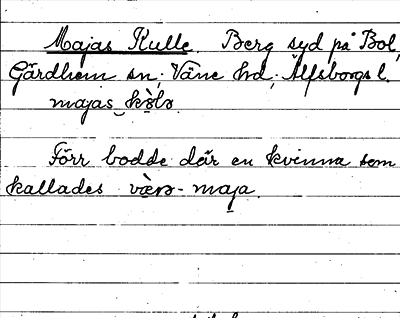 Majas Kulle. Berg syd på Bol,
Gärdhem sn, Väne hd, Älfsborgs l.
majas kòlə
Förr bodde där en kvinna som
kallades væ̀rə-maja.